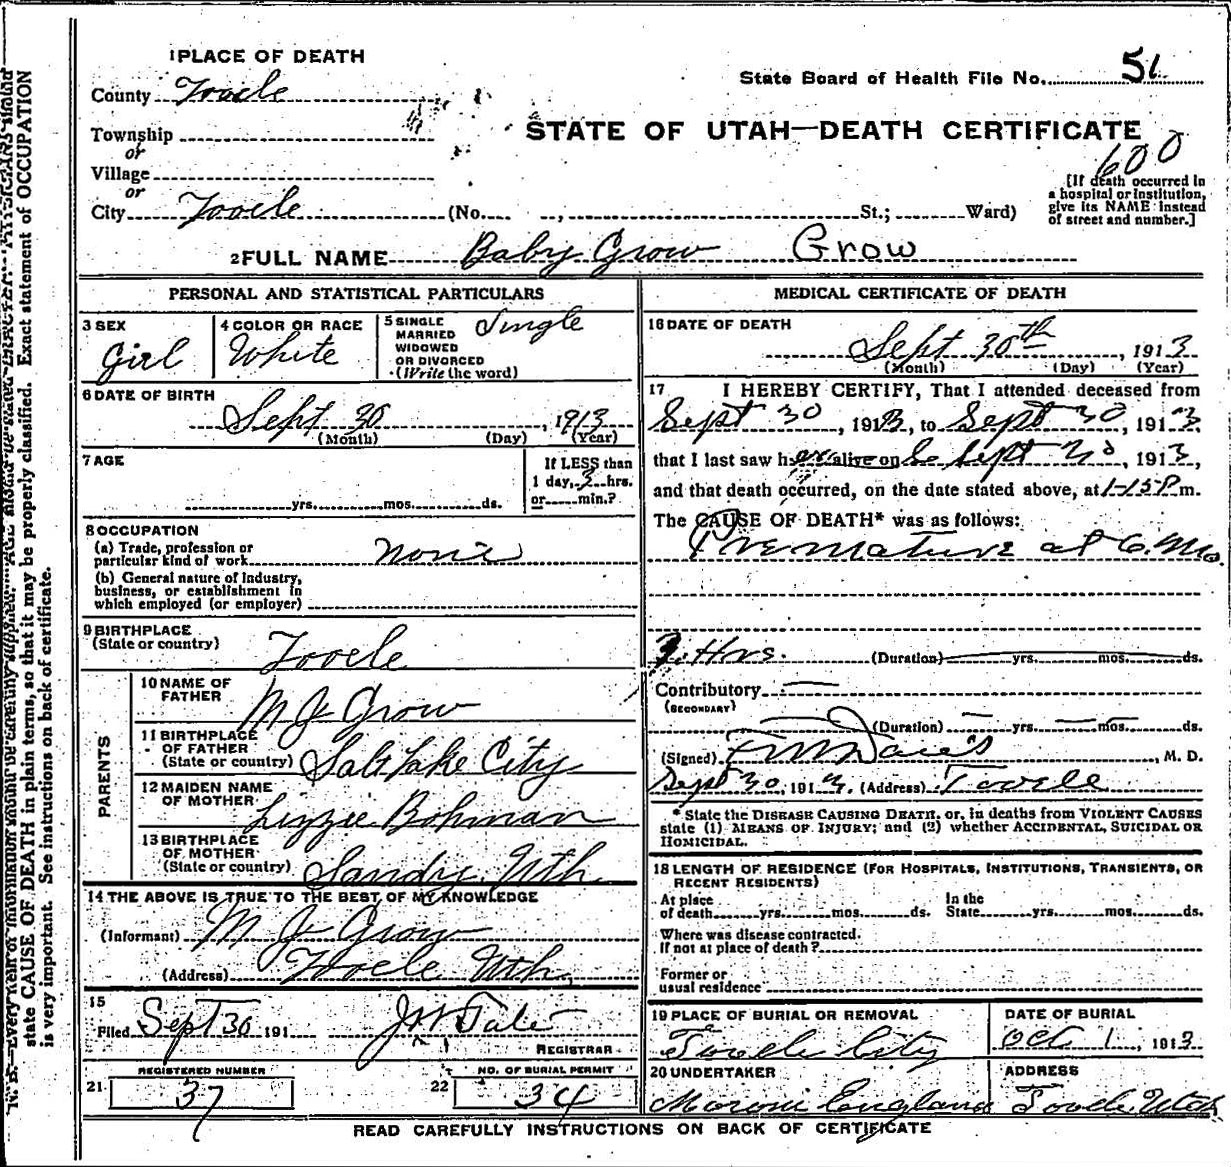 1 PLACE OF DEATH
State Board of Health File No. 51
County Tooele
STATE OF UTAH—DEATH CERTIFICATE
Township
or
600
Village
or
City Tooele (No. , St.; Ward)
[If death occurred in
a hospital or institution,
give its NAME instead
of street and number.]
2 FULL NAME Baby Grow Grow
PERSONAL AND STATISTICAL PARTICULARS
3 SEX
Girl
4 COLOR OR RACE
White
5 SINGLE
MARRIED
WIDOWED
OR DIVORCED
(Write the word)
Single
6 DATE OF BIRTH
Sept 30, 1913
(Month) (Day) (Year)
7 AGE
yrs. mos. ds.
If LESS than
1 day, 3 hrs.
or min.?
8 OCCUPATION
(a) Trade, profession or
particular kind of work None
(b) General nature of Industry,
business, or establishment in
which employed (or employer)
9 BIRTHPLACE
(State or country)
Tooele
PARENTS
10 NAME OF
FATHER
M J Grow
11 BIRTHPLACE
OF FATHER
(State or country)
Salt Lake City
12 MAIDEN NAME
OF MOTHER
Lizzie Bohman
13 BIRTHPLACE
OF MOTHER
(State or country)
Sandy Uth.
14 THE ABOVE IS TRUE TO THE BEST OF MY KNOWLEDGE
(Informant) M J Grow
(Address) Tooele Uth.
15
Filed Sept 30 191
REGISTRAR
REGISTERED NUMBER
21 37
NO. OF BURIAL PERMIT
22 34
MEDICAL CERTIFICATE OF DEATH
16 DATE OF DEATH
Sept 30th, 1913
(Month) (Day) (Year)
17 I HEREBY CERTIFY, That I attended deceased from
Sept 30, 1913, to Sept 30, 1913,
that I last saw her alive on Sept 30, 1913,
and that death occurred, on the date stated above, at 1-15 P m.
The CAUSE OF DEATH* was as follows:
Premature at 6. Mo.
3 Hrs. (Duration) yrs. mos. ds.
Contributory
(SECONDARY)
(Duration) yrs. mos. ds.
(Signed) Davis, M. D.
Sept 30, 1913. (Address) Tooele
* State the DISEASE CAUSING DEATH, or, in deaths from VIOLENT CAUSES
state (1) MEANS OF INJURY; and (2) whether ACCIDENTAL, SUICIDAL OR
HOMICIDAL.
18 LENGTH OF RESIDENCE (FOR HOSPITALS, INSTITUTIONS, TRANSIENTS, OR
RECENT RESIDENTS)
At place
of death yrs. mos. ds.
In the
State yrs. mos. ds.
Where was disease contracted.
If not at place of death?
Former or
usual residence
19 PLACE OF BURIAL OR REMOVAL
Tooele City
DATE OF BURIAL
Oct 1, 1913
20 UNDERTAKER
Moroni England
ADDRESS
Tooele Utah
READ CAREFULLY INSTRUCTIONS ON BACK OF CERTIFICATE
state CAUSE OF DEATH in plain terms, so that it may be properly classified. Exact statement of OCCUPATION
is very important. See instructions on back of certificate.